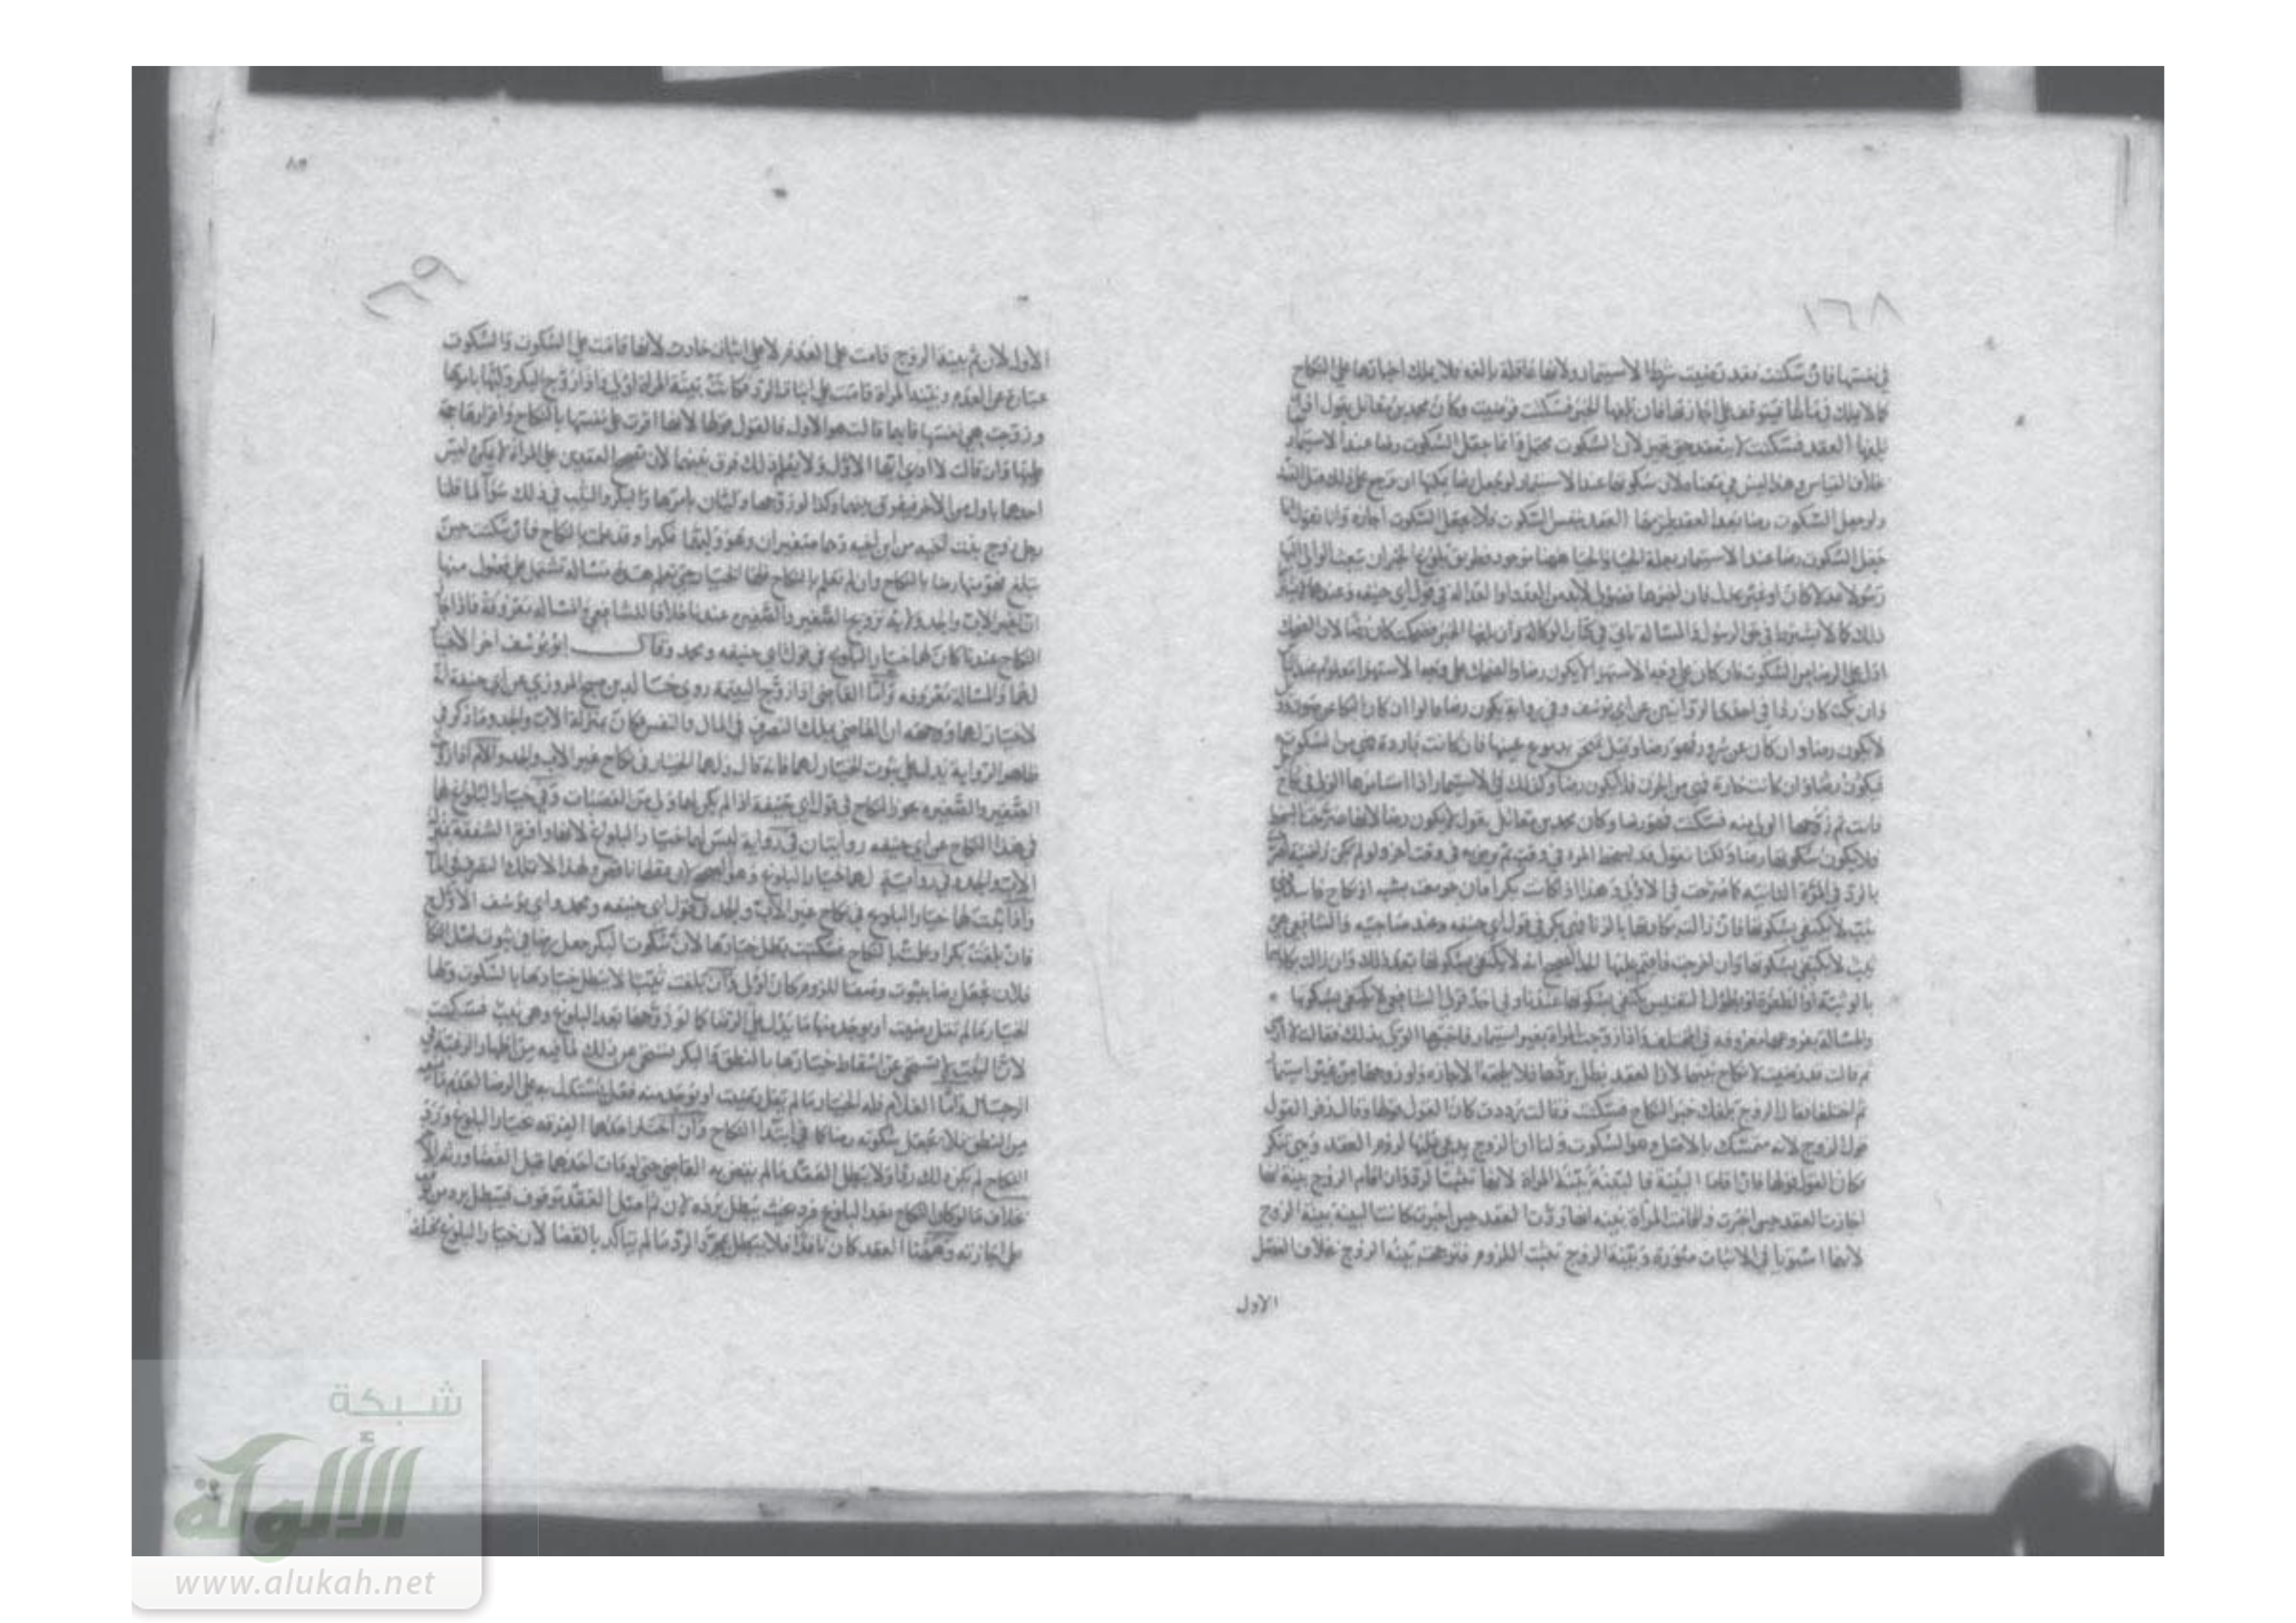 ١٦٨
في نفسها فان سكتت فقد رضيت شرطا لاستيمار ولانها عاقلة بالغة فلا يملك اجبارها على النكاح
كما لا يملك في مالها فيتوقف على اجازتها فان بلغها الخبر فسكتت فرضيت وكان محمد بن مقاتل يقول اذا
بلغها العقد فسكتت لا ينعقد حتى تجيز لان السكوت محتمل وانما جعل السكوت رضا عند الاستيمار
بخلاف القياس وهذا ليس في معناه لان سكوتها عند الاستيمار لو لم يجعل رضا يمكنها ان ترجع
ولو جعل السكوت رضا بعد العقد يلزمها العقد بنفس السكوت فلا يجعل السكوت اجازة وانا نقول
جعل السكوت رضا عند الاستيمار بعلة الحيا والحيا ههنا موجود وطريق بلوغ الخبر ان يبعث الولي اليها
رسولا عدلا كان او غير عدل فان اخبرها فضولي لابد من العدد او العدالة في قول ابي حنيفة وعندهما
ذلك كما لا يشترط في حق الرسول والمسالة تاتي في كتاب الوكالة وان بلغها الخبر فضحكت كان رضا لان الضحك
ادل على الرضا من السكوت فان كان على وجه الاستهزا لا يكون رضا والضحك على وجه الاستهزا معلوم
وان بكت كان ردا في احدى الروايتين عن ابي يوسف وفي رواية يكون رضا قالوا ان كان البكا عن صوت
لا يكون رضا وان كان عن سرور فهو رضا وقيل تمتحن بدموع عينها فان كانت باردة فهي من السكوت
فيكون رضا وان كانت حارة فهي من الحزن فلا يكون رضا وكذلك في الاستيمار اذا استامرها الولي في نكاح
فابت ثم زوجها الولي منه فسكتت فهو رضا وكان محمد بن مقاتل يقول لا يكون رضا لانها صرحت بالسخط
فلا يكون سكوتها رضا ولكنا نقول قد يسخط المرء في وقت ثم يرضى به في وقت آخر ولو لم تكن راضية
بالرد في المرة الثانية كما صرحت في الاولى وهذا اذا كانت بكرا فان جومعت بشبهة او نكاح فاسد
ثيب لا يكتفى بسكوتها فان زالت بكارتها بالزنا فهي بكر في قول ابي حنيفة وعند صاحبيه والشافعي هي
ثيب لا يكتفى بسكوتها وان اخرجت فاقيم عليها الحد الصحيح انه لا يكتفى بسكوتها بعد ذلك وان زالت بكارتها
بالوثبة او الطفرة او بطول التعنيس يكتفى بسكوتها عندنا وفي احد قولي الشافعي لا يكتفى بسكوتها
والمسالة بفروعها معروفة في المختلف واذا زوجت المراة بغير استيمار فاخبرها الولي بذلك فقالت لا ارضى
ثم قالت قد رضيت لا نكاح بينهما لان العقد بطل بردها فلا يلحقه الاجازة ولو زوجها من غير استيمار
ثم اختلفا فقال الزوج بلغك خبر النكاح فسكتت وقالت رددت كان القول قولها وقال زفر القول
قول الزوج لانه متمسك بالاصل وهو السكوت ولنا ان الزوج يدعي عليها لزوم العقد وهي تنكر
فكان القول قولها فان اقاما البينة فالبينة بينة المراة لانها تثبت الرد وان اقام الزوج بينة انها
اجازت العقد حين اخبرت واقامت المراة بينة انها ردت العقد حين اخبرت كانت البينة بينة الزوج
لانهما استويا في الاثبات صورة وبينة الزوج تثبت اللزوم فترجحت بينة الزوج بخلاف الفصل
الاول
٨٥
١٦٩
الاول لان ثم بينة الزوج قامت على العدم لا على اثبات حادث لانها قامت على السكوت والسكوت
عبارة عن العدم وبينة المراة قامت على اثبات الرد فكانت بينة المراة اولى واذا زوج البكر وليها بامرها
وزوجت هي نفسها فايهما قالت هو الاول فالقول قولها لانها اقرت على نفسها بالنكاح واقرارها حجة
عليها وان قالت لا ادري ايهما الاول ولا يعلم ذلك فرق بينهما لان تصحيح العقدين على المراة لا يمكن وليس
احدهما باولى من الآخر فيفرق بينهما وكذا لو زوجها وليان بامرها والبكر والثيب في ذلك سواء لما قلنا
رجل زوج بنت اخيه من ابن اخيه وهما صغيران وهو وليهما فكبرا وقد علمت بالنكاح فان سكتت حين
تبلغ فهو منها رضا بالنكاح وان لم تعلم بالنكاح فلها الخيار حتى تعلم هذه مسالة تشتمل على فصول منها
ان لغير الاب والجد ولاية تزويج الصغير والصغيرة عندنا خلافا للشافعي والمسالة معروفة فاذا جاز
النكاح عندنا كان لهما خيار البلوغ في قول ابي حنيفة ومحمد وقال ابو يوسف آخرا لا خيار
لهما والمسالة معروفة واما القاضي اذا زوج اليتيمة روى خالد بن صبيح المروزي عن ابي حنيفة انه
لا خيار لهما ووجهه ان القاضي يملك التصرف في المال والنفس فكان بمنزلة الاب والجد وما ذكر في
ظاهر الرواية يدل على ثبوت الخيار لهما فانه قال ولهما الخيار في نكاح غير الاب والجد والام اذا زوجت
الصغير والصغيرة يجوز النكاح في قول ابي حنيفة اذا لم يكن لهما ولي من العصبات وفي خيار البلوغ لهما
في هذا النكاح عن ابي حنيفة روايتان في رواية ليس لهما خيار البلوغ لانها وافرة الشفقة
الاب والجد وفي رواية لهما خيار البلوغ وهو الصحيح لان عقلها ناقص ولهذا لا تملك التصرف في المال
واذا ثبت لهما خيار البلوغ في نكاح غير الاب والجد في قول ابي حنيفة ومحمد وابي يوسف الاول
فان بلغت بكرا وعلمت بالنكاح فسكتت بطل خيارها لان سكوت البكر جعل رضا في ثبوت اصل النكاح
فلان يجعل رضا بثبوت وصف اللزوم كان اولى وان بلغت ثيبا لا يبطل خيارها بالسكوت ولها
الخيار ما لم تقل رضيت او يوجد منها ما يدل على الرضا كما لو زوجها بعد البلوغ وهي ثيب فسكتت
لان الثيب لا تستحي عن اسقاط خيارها بالنطق والبكر تستحي عن ذلك لما فيه من اظهار الرغبة في
الرجال واما الغلام فله الخيار ما لم يقل رضيت او يوجد منه فعل يستدل به على الرضا لعدم
من النطق فلا يجعل سكوته رضا كما في ابتداء النكاح وان اختار احدهما الفرقة بخيار البلوغ ورد
النكاح لم يكن ذلك ردا ولا يبطل العقد ما لم ينقض به القاضي حتى لو مات احدهما قبل القضا ورثه الآخر
بخلاف ما لو كان النكاح بعد البلوغ فرد حيث يبطل برده لان ثم اصل العقد موقوف فيبطل برد من
على اجازته وههنا العقد كان نافذا فلا يبطل بمجرد الرد ما لم يتاكد بالقضا لان خيار البلوغ مختلف
شبكة
الألوكة
www.alukah.net